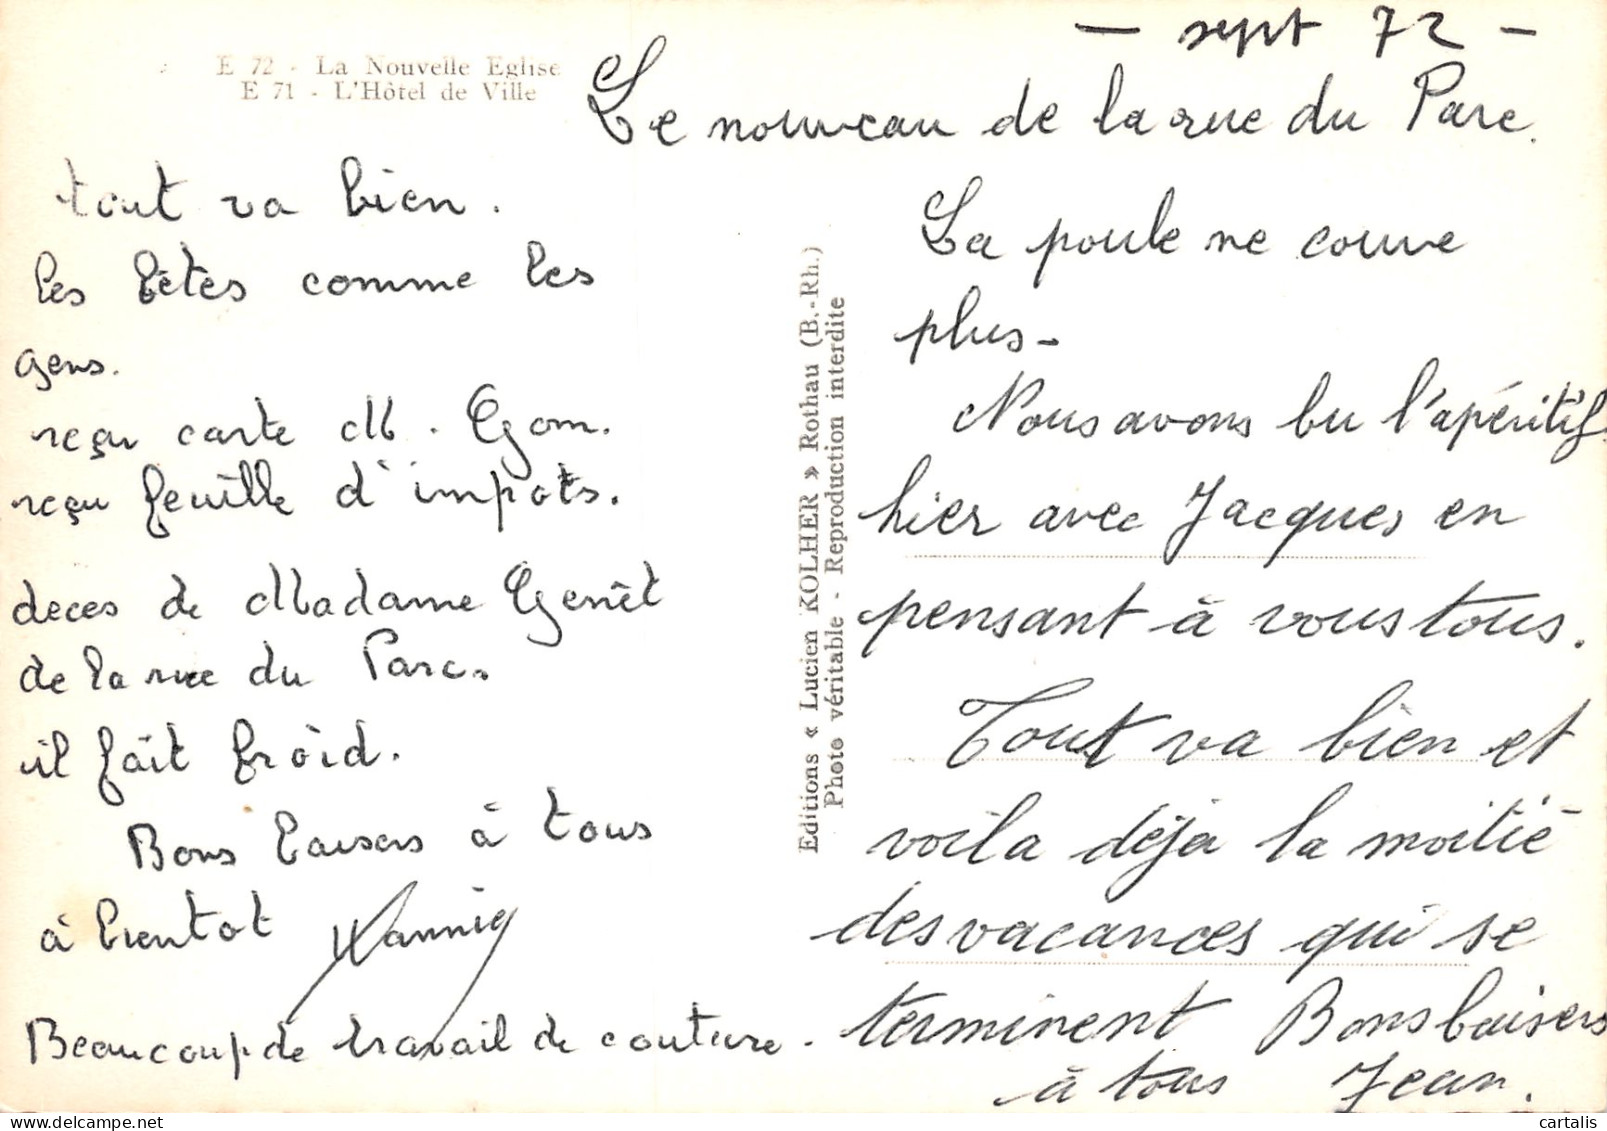 - sept 72 -
E 72 - La Nouvelle Eglise
E 71 - L'Hôtel de Ville
Le nouveau de la rue du Parc.
tout va bien.
les bêtes comme les
gens.
reçu carte M. Gom.
reçu feuille d'impots.
deces de Madame Genêt
de la rue du Parc.
il fait froid.
Bons baisers à tous
à bientot Nannig
Beaucoup de travail de couture.
Editions « Lucien KOLHER » Rothau (B.-Rh.)
Photo véritable - Reproduction interdite
La poule ne couve
plus -
Nous avons bu l'apéritif
hier avec Jacques en
pensant à vous tous.
Tout va bien et
voila déja la moitié
des vacances qui se
terminent Bons baisers
à tous Jean.
cartalis